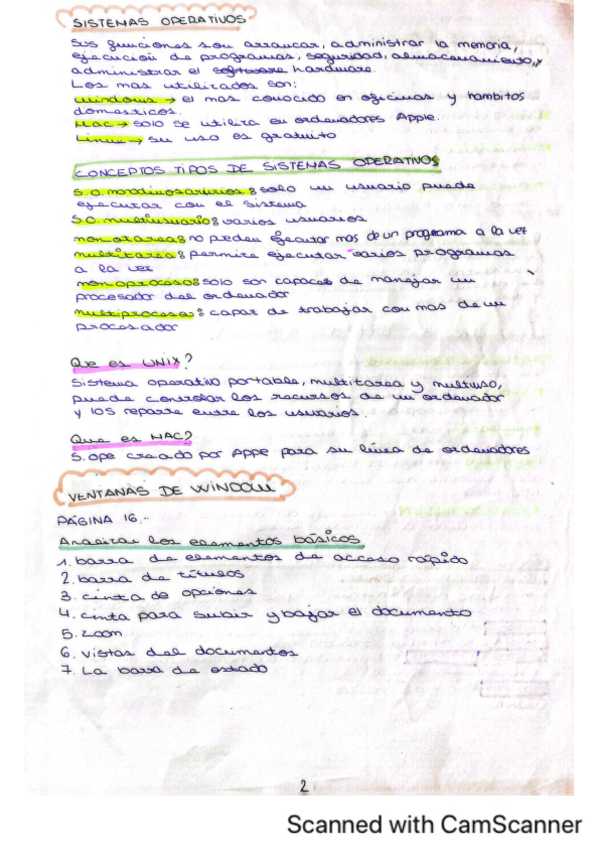 SISTEMAS OPERATIVOS
Sus funciones son arrancar, administrar la memoria,
ejecución de programas, seguridad, almacenamiento, y
administrar el software hardware.
Los mas utilizados son:
Windows → el mas conocido en oficinas y hambitos
domesticos.
Mac → solo se utiliza en ordenadores Apple.
Linux → su uso es gratuito
CONCEPTOS TIPOS DE SISTEMAS OPERATIVOS
S.O. : solo un usuario puede
ejecutar con el sistema
S.O. multiusuario: varios usuarios
monotarea: no pueden ejecutar mas de un programa a la vez
multitarea: permite ejecutar varios programas
a la vez
monoproceso: solo son capaces de manejar un
procesador del ordenador
multiproceso: capaz de trabajar con mas de un
procesador
Que es UNIX?
Sistema operativo portable, multitarea y multiuso,
puede controlar los recursos de un ordenador
y los reparte entre los usuarios.
Que es MAC?
S.ope creado por Appe para su línea de ordenadores
VENTANAS DE WINDOW
PÁGINA 16.-
Analizar los elementos básicos
1. barra de elementos de acceso rápido
2. barra de títulos
3. cinta de opciones
4. cinta para subir y bajar el documento
5. zoom
6. vistas del documentos
7. La barra de estado
2
Scanned with CamScanner